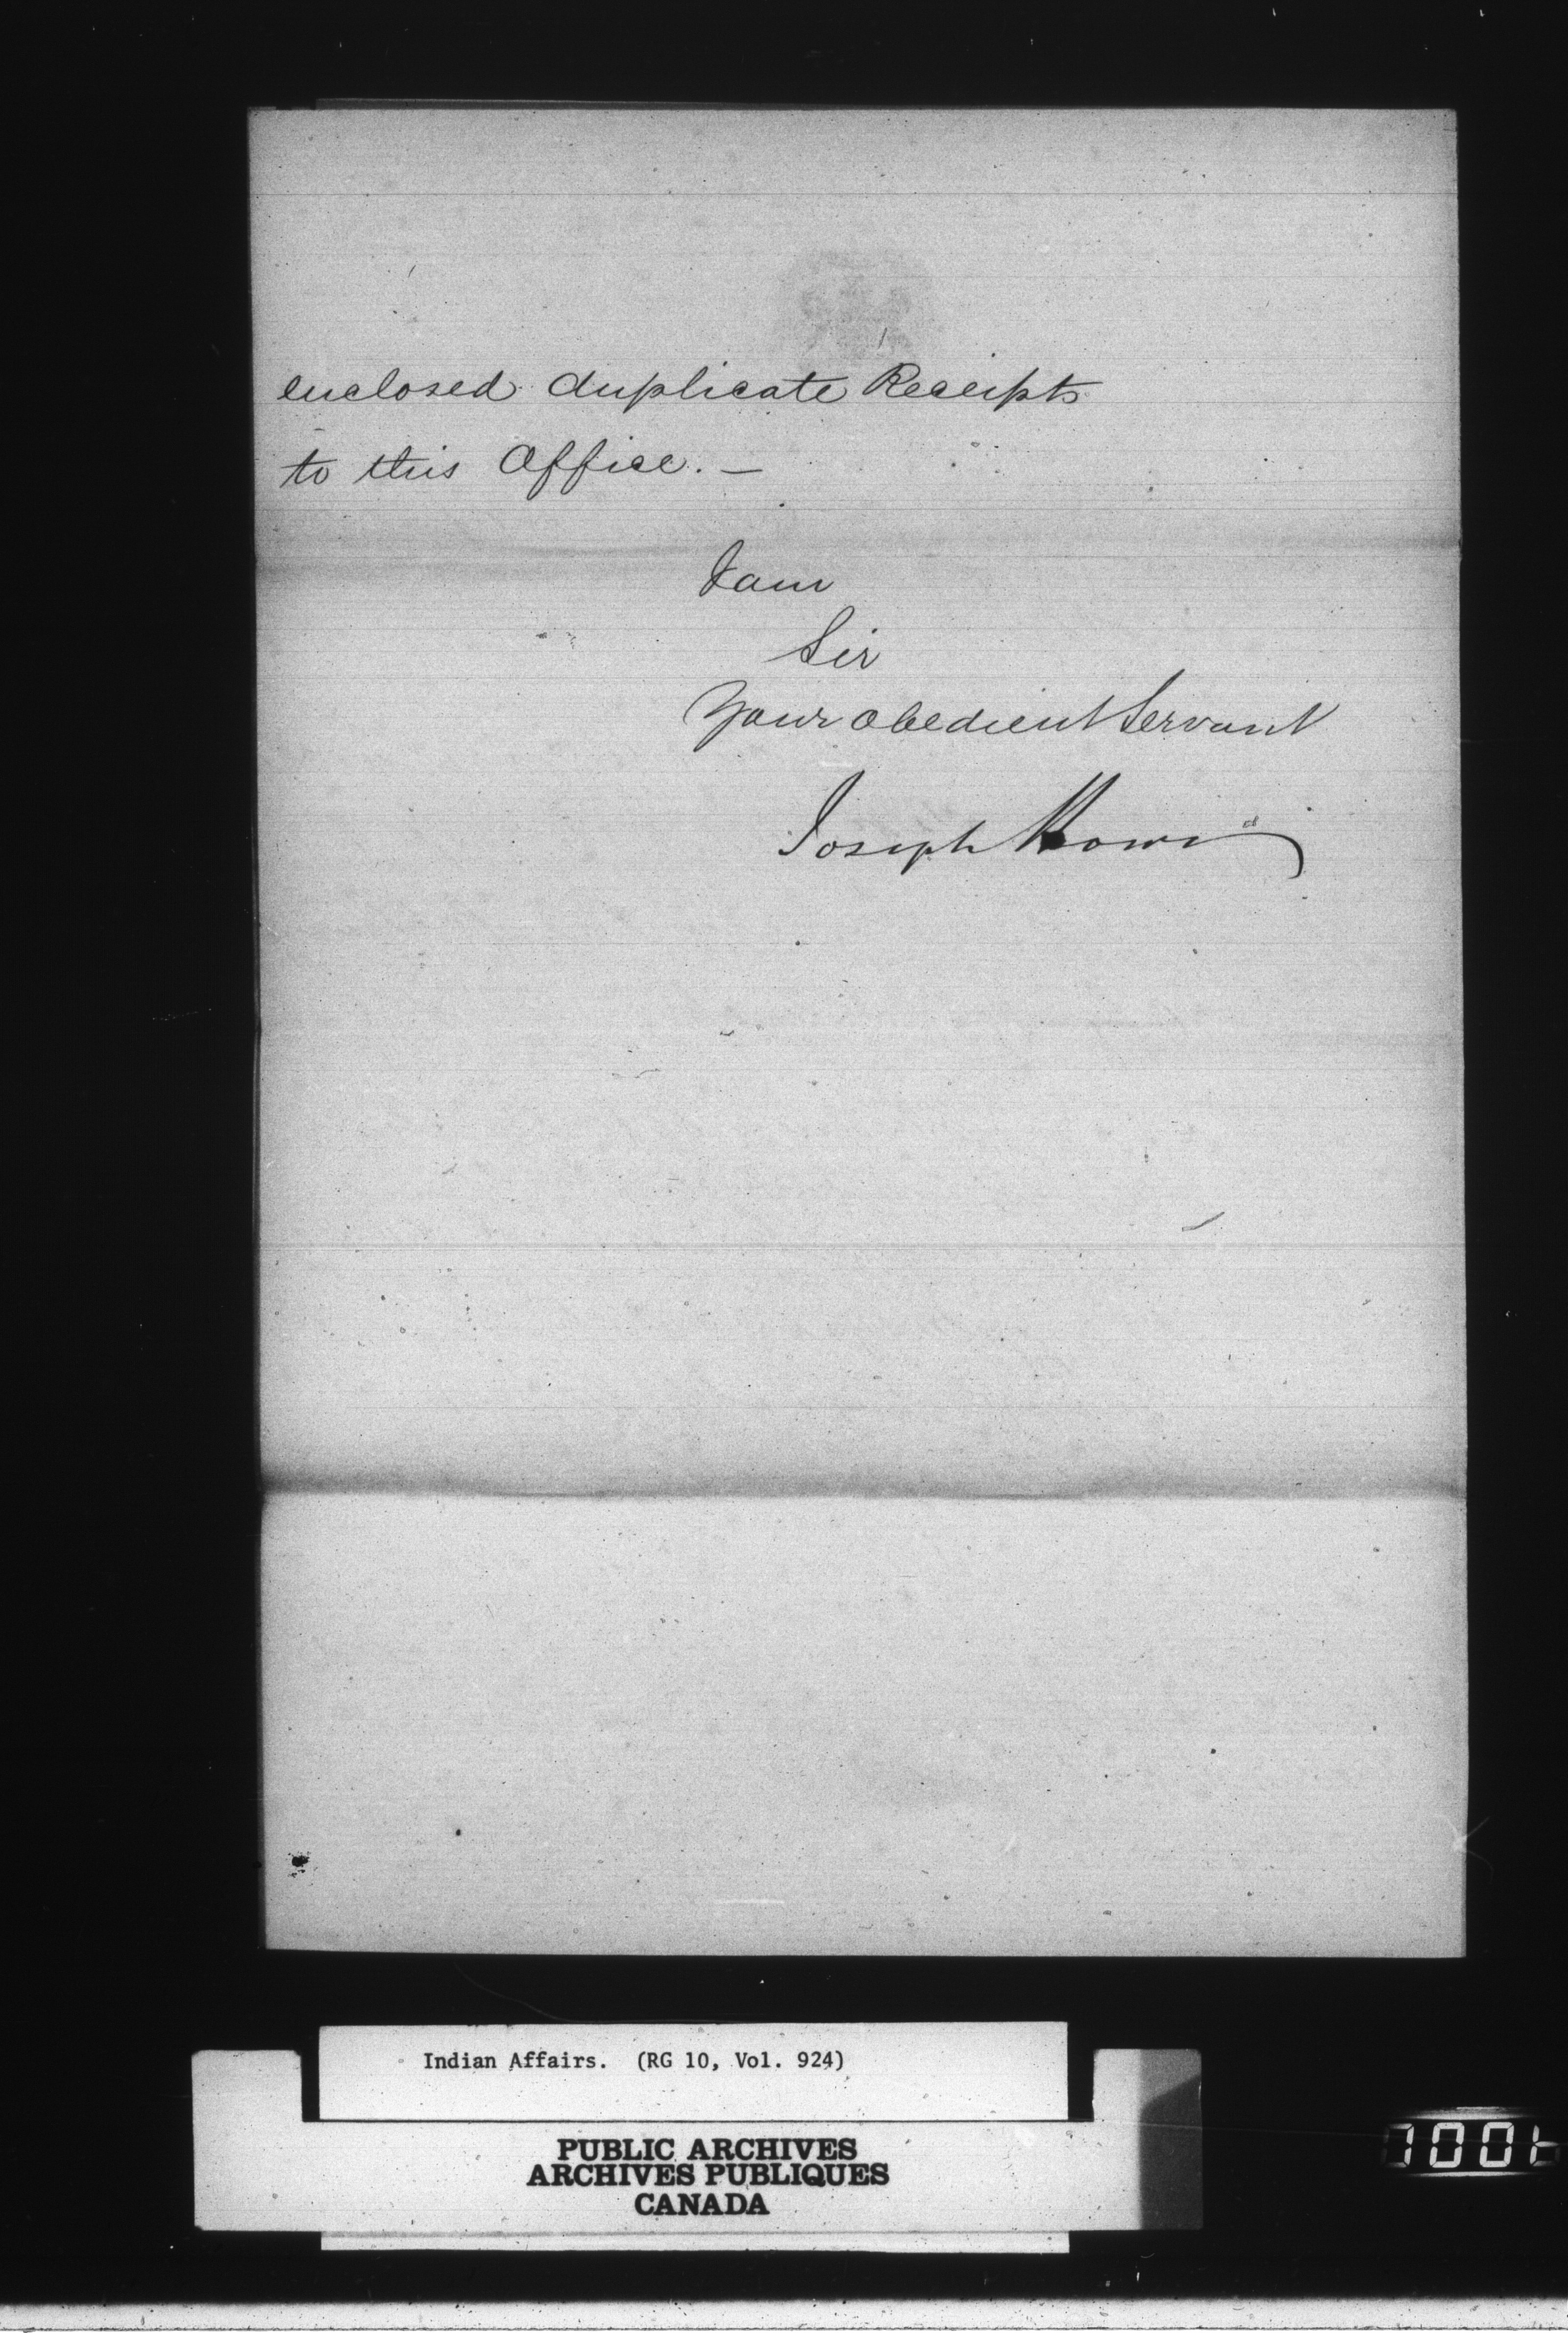 enclosed duplicate Receipts
to this Office. —
I am
Sir
Your obedient Servant
Joseph Howe
Indian Affairs. (RG 10, Vol. 924)
PUBLIC ARCHIVES
ARCHIVES PUBLIQUES
CANADA